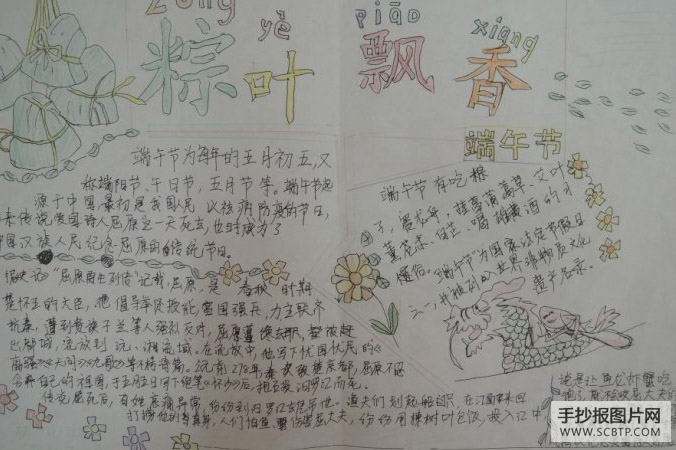 zòng yè piāo xiāng
粽叶飘香
端午节
端午节为每年的五月初五,又
称端阳节、午日节、五月节等。端午节起
源于中国最初是我国民 以祛病防疫的节日,
来传说爱国诗人屈原这一天死去,也时成为了
中国汉族人民纪念屈原的传统节日。
端午节有吃粽
子,赛龙舟,挂菖蒲蒿草、艾叶
薰苍术、白芷 喝雄黄酒的习
俗。端午节为国家法定节假日
之一,并被列入世界非物质文化
遗产名录。
据史记"屈原贾生列传"记载,屈原,是 春秋 时期
楚怀王的大臣,他倡导举贤授能,富国强兵,力主联齐
抗秦,遭到贵族子兰等人强烈反对,屈原遭馋去职,被赶
出都城,流放到沅、湘流域。在流放中,他写下忧国忧民的《
离骚》《天问》《九歌》等不朽诗篇。公元前278年,秦军攻破楚京都,屈原不忍
舍弃自己的祖国,于五月五日写下绝笔《怀沙》后,抱石投汨罗江而死。
传说屈死后,百姓哀痛异常,纷纷到汨罗江去凭吊他。渔夫们划起船只,在江面来回
打捞他的真身,人们怕鱼 蟹伤害屈大夫,纷纷用楝树叶包饭,投入江中
说是让鱼龙虾蟹吃
饱了
手抄报图片网
WWW.SCBTP.COM